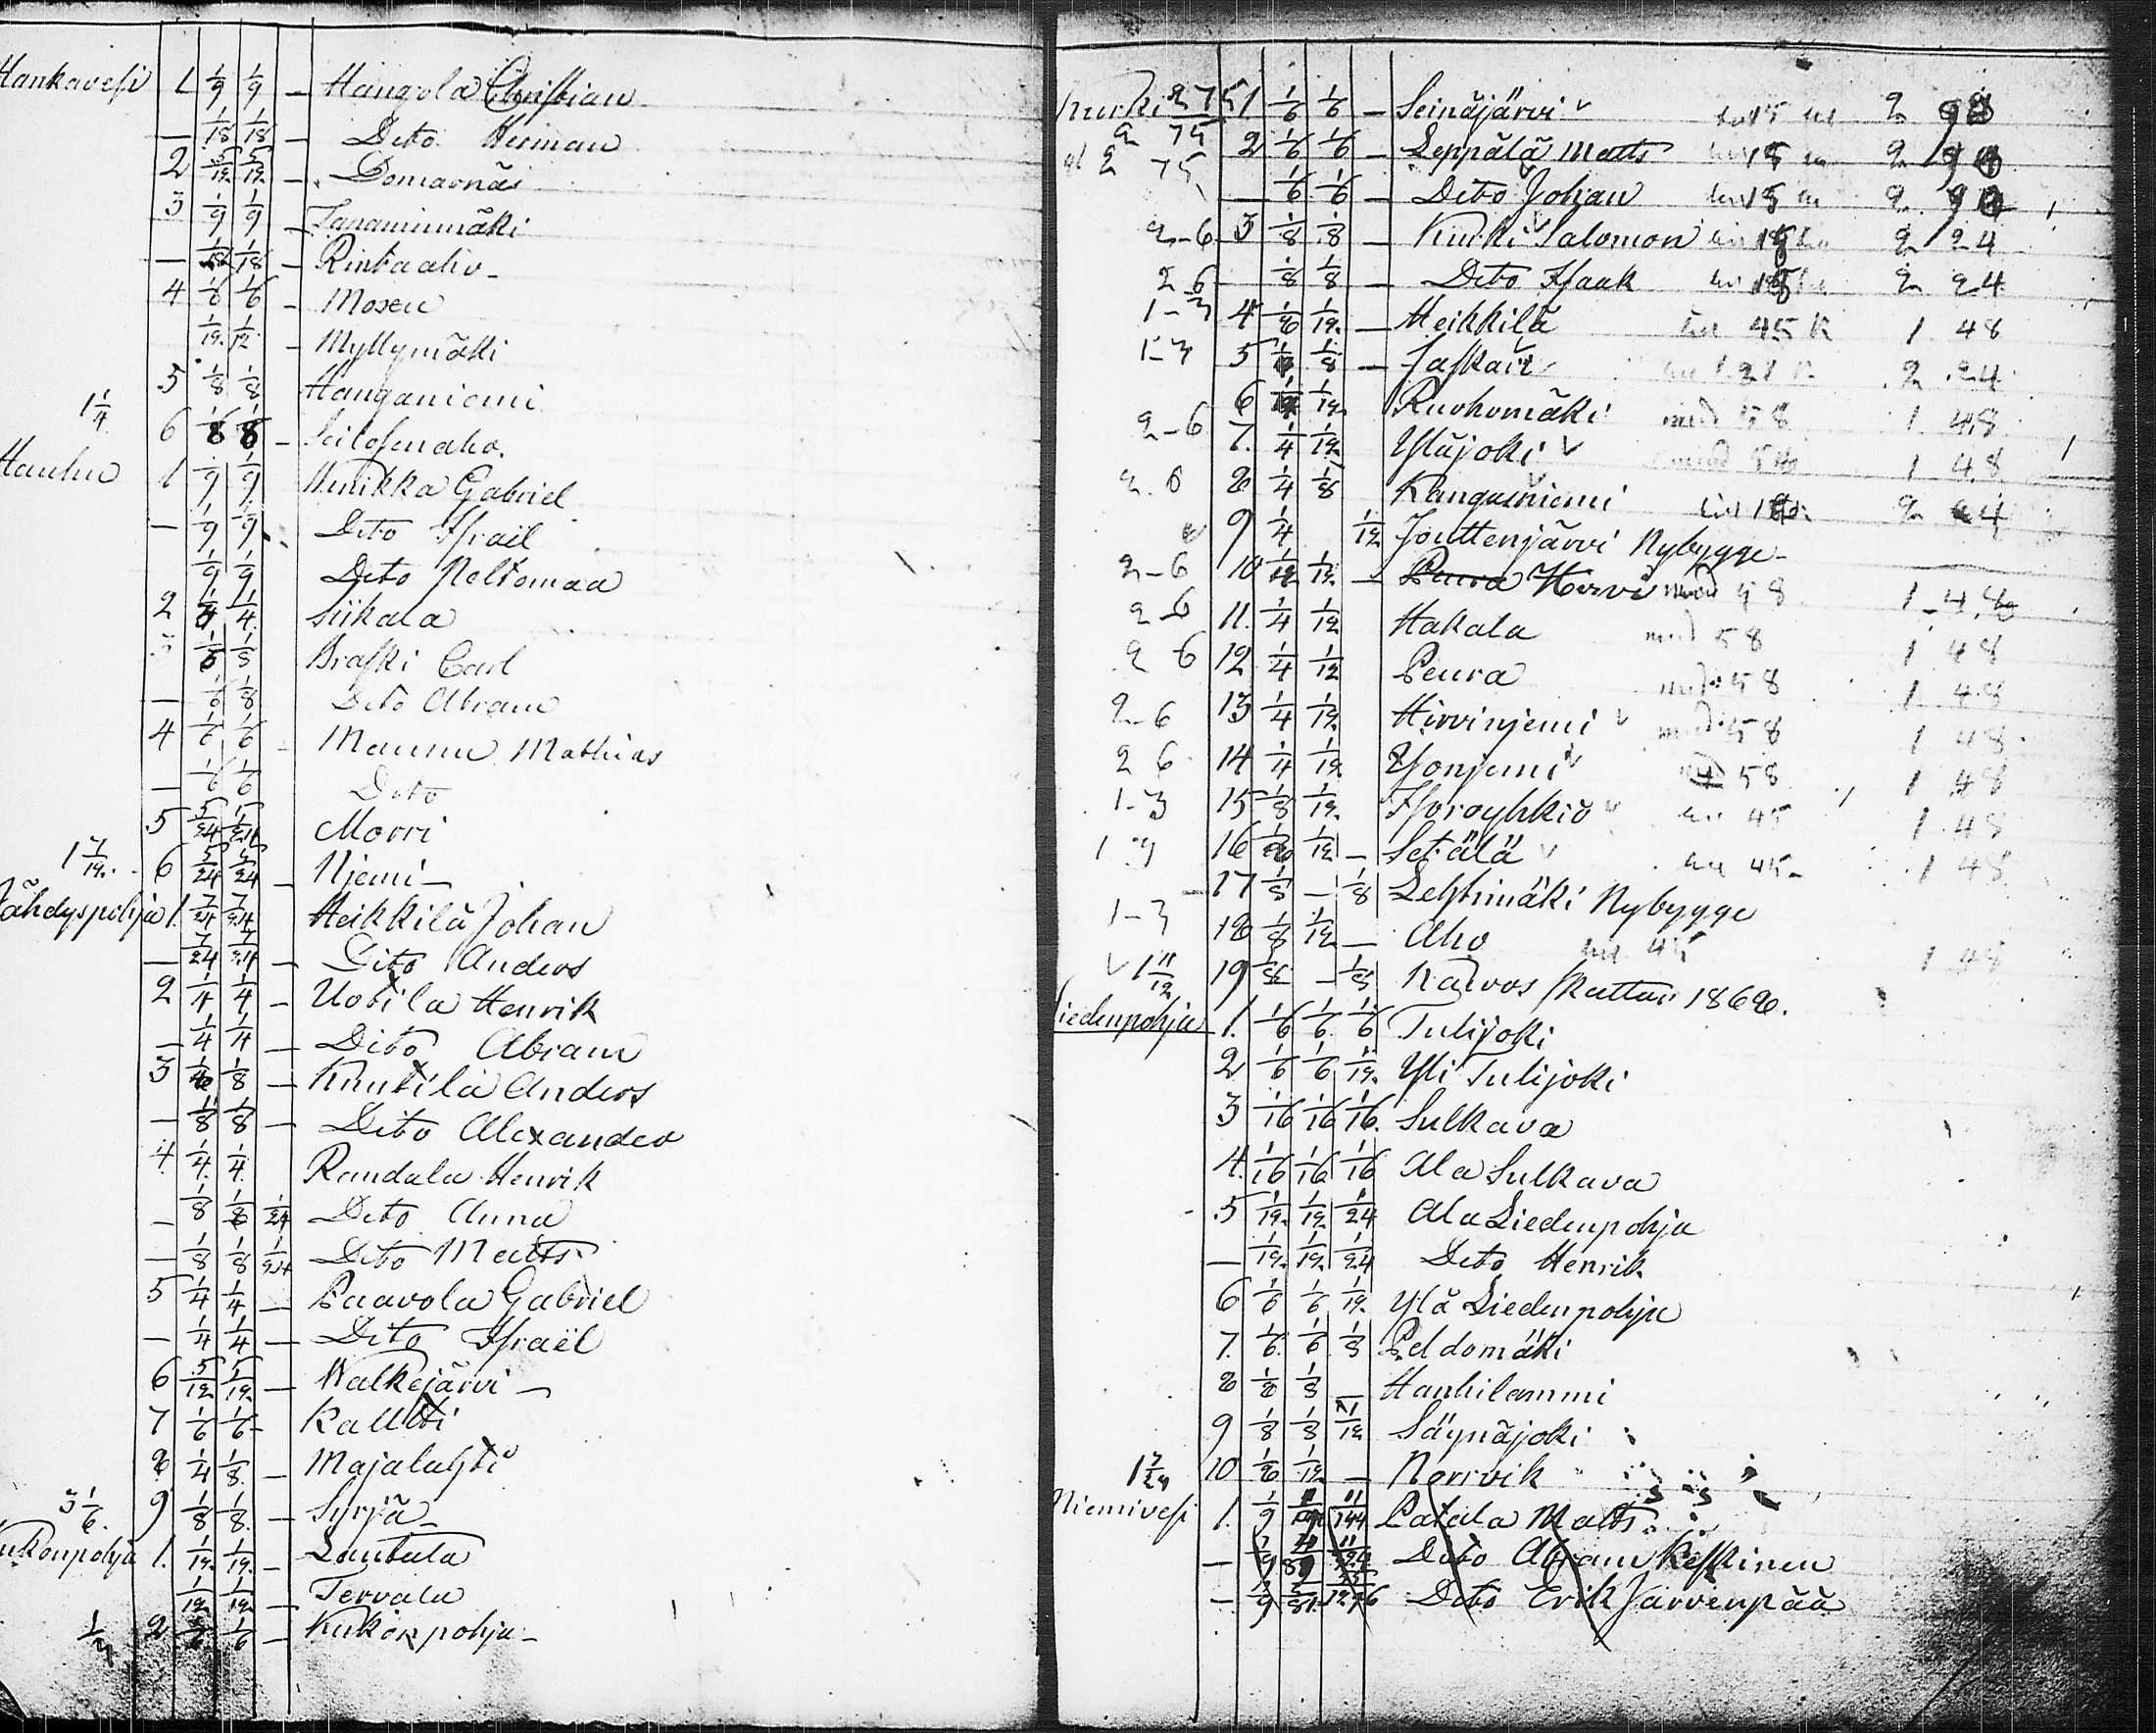 Hankavesi 1 1/9 1/9 — Hangola Christian
— 1/18 1/18 — Dito Herman
2 5/12 5/12 — Domarnäs
3 1/9 1/9 — Janaminmäki
— 1/18 1/18 — Rintaaho
4 1/6 1/6 — Moxen
1/12 1/12 — Myllymäki
5 1/8 1/8 Hanganiemi
1 1/4 6 1/8 1/8 — Seilosenaho.
Hauhu 1 1/9 1/9 Hinikka Gabriel
— 1/9 1/9 Dito Israil
1/9 1/9 Dito Peltomaa
2 1/4 1/4 Siikala
3 1/8 1/8 Braski Carl
— 1/8 1/8 Dito Abram
4 1/6 1/6 Maunu Mathias
— 1/6 1/6 Dito
5 5/24 5/24 Morri
1 7/12 6 5/24 5/24 — Njemi —
Tähdyspohja 1. 7/24 7/24 Heikkilä Johan
— 7/24 7/24 — Dito Anders
2 1/4 1/4 — Uotila Henrik
— 1/4 1/4 — Dito Abram
3 1/8 1/8 — Knutila Anders
— 1/8 1/8 — Dito Alexander
4 1/4 1/4 Randala Henrik
— 1/8 1/8 1/24 Dito Anna
— 1/8 1/8 1/24 Dito Matts
5 1/4 1/4 — Paavola Gabriel
— 1/4 1/4 — Dito Israël
6 5/12 5/12 — Walkejärvi —
7 1/6 1/6 Kallio
8 1/4 1/8 — Majalahti
3 1/6 9 1/8 1/8 — Syrjä —
Kukonpohja 1. 1/12 1/12 — Lautala
1/12 1/12 — Tervala
1/3 2 1/6 1/6 — Kukonpohja —
Kurki 2 75 1 1/6 1/6 — Seinäjärvi 2 98
2 75 2 1/6 1/6 — Leppälä Matts 2 98
2 75 — 1/6 1/6 — Dito Johan 2 98
2-6 3 1/8 1/8 — Kurki Salomon 2 24
2 6 — 1/8 1/8 — Dito Isaak 2 24
1-3 4 1/8 1/12 — Heikkilä 45 K 1 48
1-3 5 1/8 1/8 — Jaskari 2 24
6 1/12 Ruohomäki 58 1 48
2-6 7. 1/4 1/12 Yläjoki 1 48
2. 6 8 1/4 1/8 Kangasniemi 2 24
9 1/4 1/12 Jouttenjärvi Nybygge
2-6 10 1/12 1/12 — Peura Hirvi 58 1 48
2-6 11. 1/4 1/12 Hakala 58 1 48
2 6 12 1/4 1/12 Peura 58 1 48
2-6 13 1/4 1/12 Hirvinjemi 58 1 48
2 6 14 1/4 1/12 Yonjemi 58 1 48
1-3 15 1/8 1/12 Isoroyhkiö 45 1 48
1 3 16 1/8 1/12 — Setälä 45 — 1 48
17 1/8 — 1/8 Lehtimäki Nybygge
1-3 18 1/8 1/12 — Aho 45 1 48
1 11/12 19 1/8 — 1/8 Karvos skattar 1868.
Liedenpohja 1. 1/6 1/6 1/6 Tulijoki
2 1/6 1/6 1/12 Yli Tulijoki
3 1/16 1/16 1/16 Sulkava
4. 1/16 1/16 1/16 Ala Sulkava
5 1/12 1/12 1/24 Ala Liedenpohja
— 1/12 1/12 1/24 Dito Henrik
6 1/6 1/6 1/12 Ylä Liedenpohja
7. 1/6 1/6 1/8 Peldomäki
8 1/8 1/8 — Hauhilammi
9 1/8 1/8 1/12 Säynäjoki
1 7/24 10 1/8 1/12 — Norrvik
Niemivesi 1. 1/9 11/144 Patala Matts
— 1/9 Dito Abram Keskinen
— 1/9 Dito Erik Järvenpää